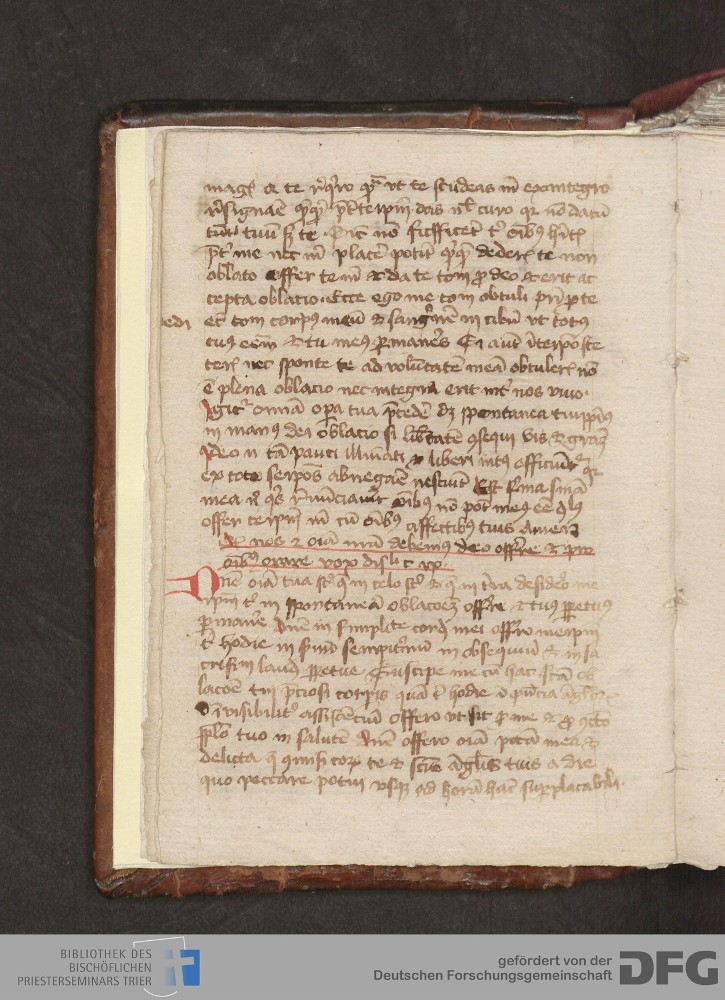 magis a te requiro quam ut te studeas mihi ex integro
resignare quicquid preter teipsum das nihil curo quia non datum
tuum sed te
me nec mihi placere poterit quicquid dederis te non
oblato offer te mihi et da te totum pro deo et erit ac
cepta oblacio Ecce ego me totum obtuli patri pro te
edi
et totum corpus meum et sanguinem in cibum ut totus
tuus essem et tu meus permaneres Si autem in te ipso ste
teris nec sponte te ad voluntatem meam obtuleris non
est plena oblacio nec integra erit inter nos unio
Igitur omnia opera tua precedere debet spontanea tui ipsius
in manus dei oblacio si libertatem consequi vis et graciam
Ideo enim tam pauci illuminati et liberi intus efficiuntur quia
ex toto se ipsos abnegare nesciunt Est firma sentencia
mea nisi quis renunciaverit omnibus non potest meus esse discipulus
offer teipsum mihi cum omnibus affectibus tuis Amen
nos et omnia nostra debemus deo offerre et pro
omnibus orare vox discipuli c ix
Domine omnia tua sunt que in celo sunt et que in terra desidero me
ipsum tibi in spontaneam oblacionem offerre et tuus perpetuus
permanere Domine in simplicitate cordis mei offero meipsum
tibi hodie in servum sempiternum in obsequium et in sa
crificium laudis perpetue Suscipe me cum hac sancta ob
lacione tui preciosi corporis quam tibi hodie in presencia angelorum
invisibiliter assistencium offero ut sit pro me et pro cuncto
populo tuo in salutem Domine offero omnia peccata mea et
delicta que commisi coram te et sanctis angelis tuis a die
quo peccare potui usque ad horam hanc super placabili
BIBLIOTHEK DES
BISCHÖFLICHEN
PRIESTERSEMINARS TRIER
gefördert von der
Deutschen Forschungsgemeinschaft
DFG